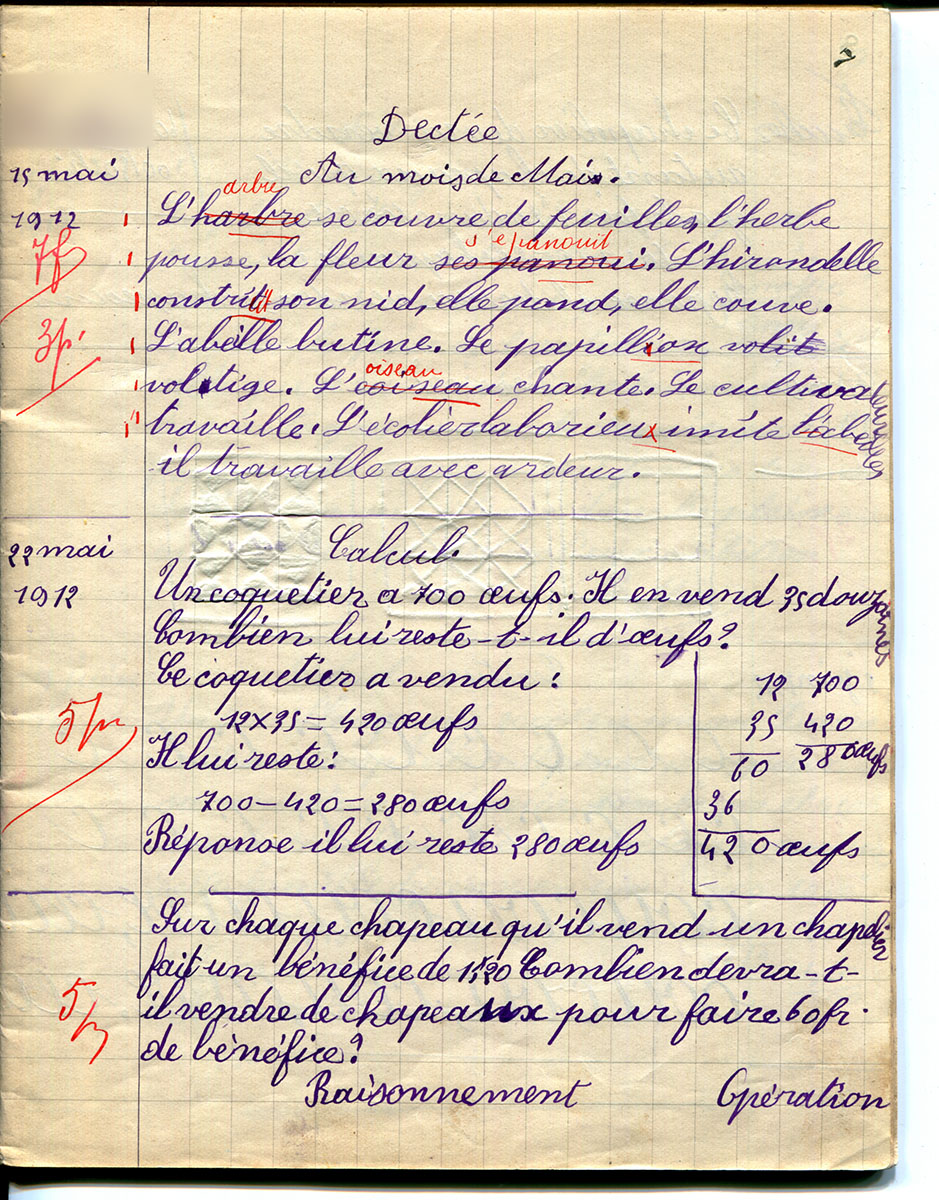 Dectée
15 mai
Au mois de Mai.
1912
arbre
L'harbre se couvre de feuilles, l'herbe
7f
s'épanouit
pousse, la fleur ses panoui. L'hirondelle
construit son nid, elle pand, elle couve.
3p
L'abeille butine. Le papillion volit
oiseau
voltige. L'oiseau chante. Le cultivateur
travaille. L'écolier laborieux imite
il travaille avec ardeur.
22 mai
Calcul.
1912
Un coquetier a 700 œufs. Il en vend 35 douzaines
Combien lui reste-t-il d'œufs?
Le coquetier a vendu :
12 700
12×35 = 420 œufs
35 420
5
Il lui reste :
60 280 œufs
700 – 420 = 280 œufs
36
Réponse il lui reste 280 œufs
420 œufs
Sur chaque chapeau qu'il vend un chapelier
fait un bénéfice de 1f,20 Combien devra-t-
5
il vendre de chapeaux pour faire 60 fr.
de bénéfice?
Raisonnement Opération